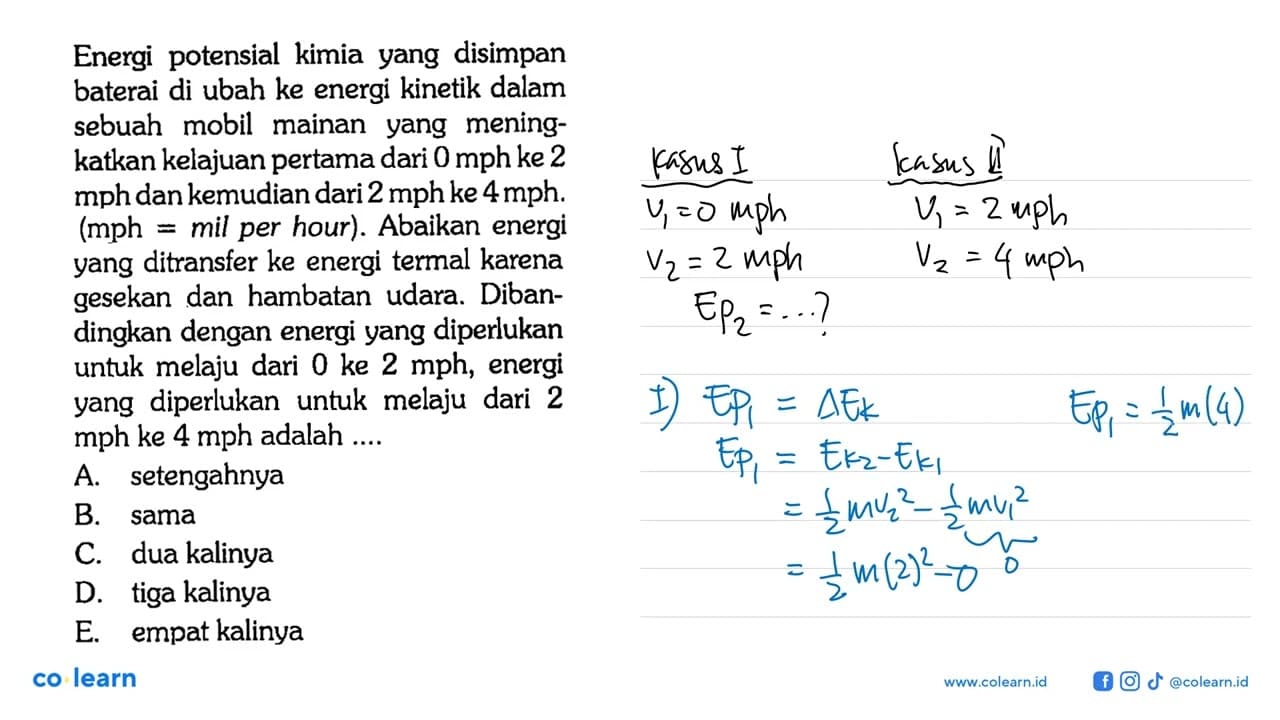 Energi potensial kimia yang disimpan
baterai di ubah ke energi kinetik dalam
sebuah mobil mainan yang mening-
katkan kelajuan pertama dari 0 mph ke 2
mph dan kemudian dari 2 mph ke 4 mph.
(mph = mil per hour). Abaikan energi
yang ditransfer ke energi termal karena
gesekan dan hambatan udara. Diban-
dingkan dengan energi yang diperlukan
untuk melaju dari 0 ke 2 mph, energi
yang diperlukan untuk melaju dari 2
mph ke 4 mph adalah ....
A. setengahnya
B. sama
C. dua kalinya
D. tiga kalinya
E. empat kalinya
Kasus I
V₁ = 0 mph
V₂ = 2 mph
Ep₂ = ...?
Kasus II
V₁ = 2 mph
V₂ = 4 mph
I) Ep₁ = ΔEk
Ep₁ = Ek₂ - Ek₁
= 1/2 mv₂² - 1/2 mv₁²
0
= 1/2 m(2)² - 0
Ep₁ = 1/2 m(4)
co learn
www.colearn.id
@colearn.id